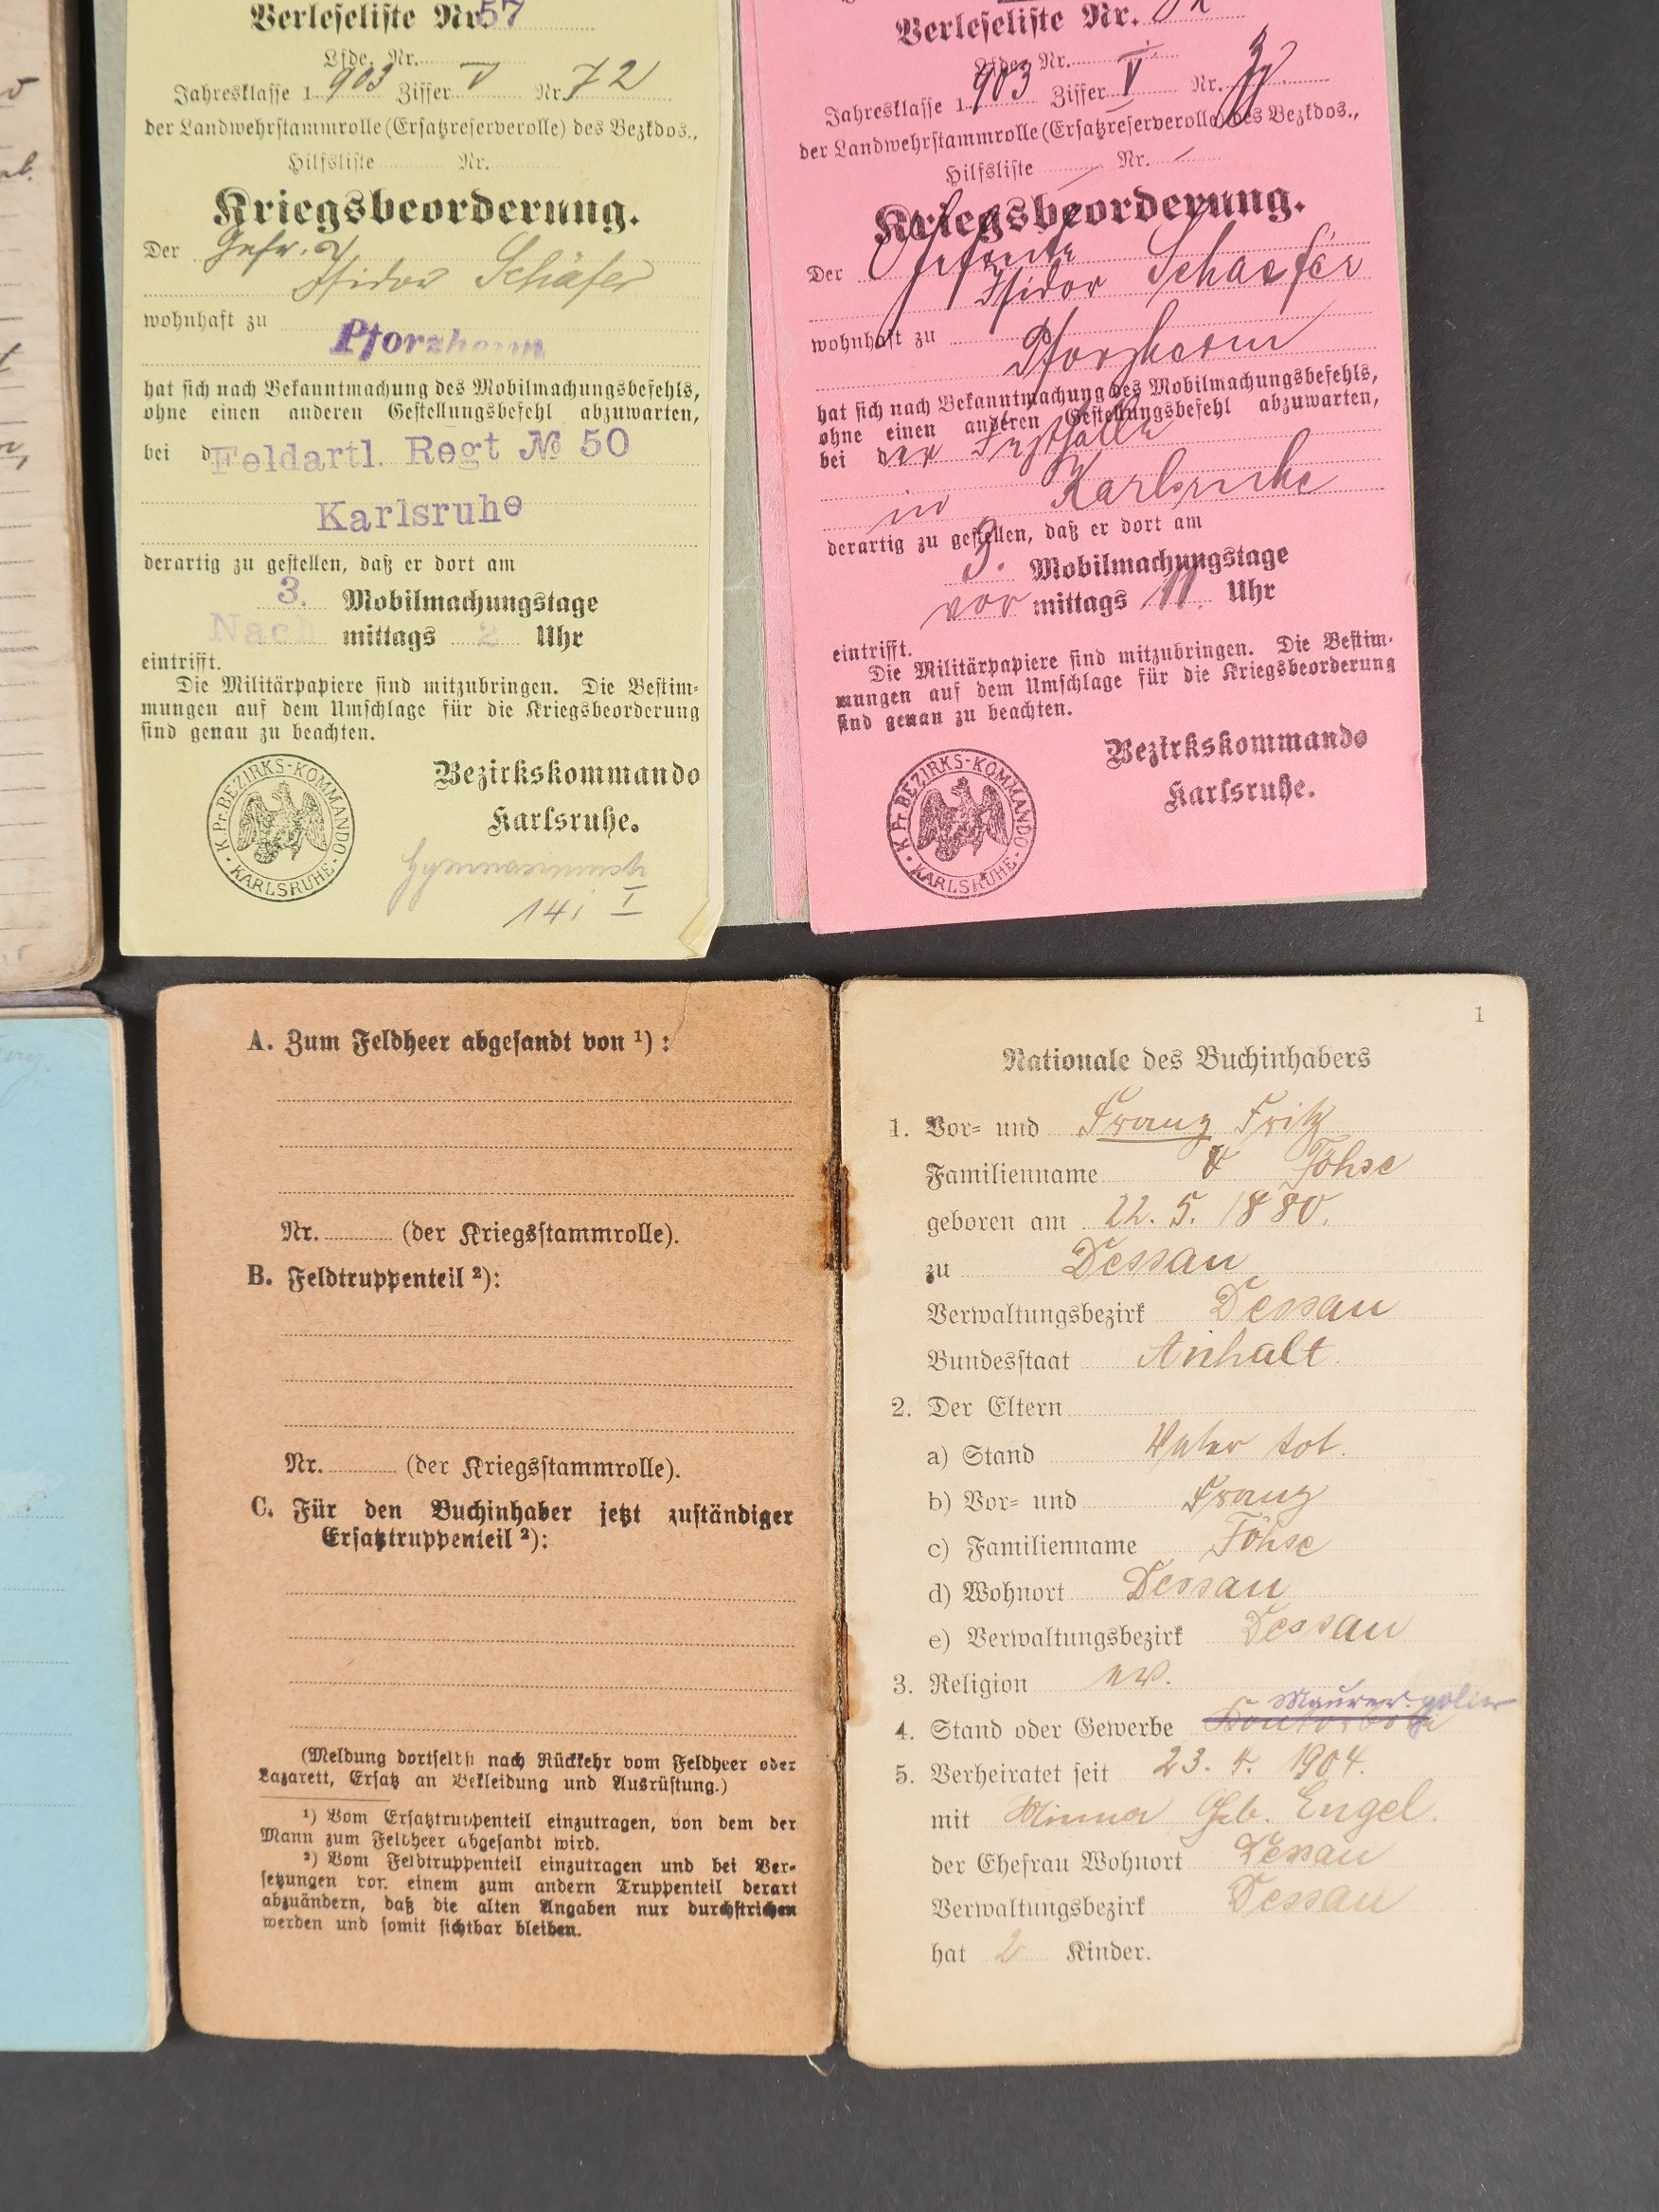 Verleseliste Nr. 57
Lfde. Nr.
Jahresklasse 1903 Ziffer V Nr. 72
der Landwehrstammrolle (Ersatzreserverolle) des Bezkdos.,
Hilfsliste Nr.
Kriegsbeorderung.
Der Gefr. d
Isidor Schäfer
wohnhaft zu
Pforzheim
hat sich nach Bekanntmachung des Mobilmachungsbefehls,
ohne einen anderen Gestellungsbefehl abzuwarten,
bei d Feldartl. Regt № 50
Karlsruhe
derartig zu gestellen, daß er dort am
3. Mobilmachungstage
Nach mittags 2 Uhr
eintrifft.
Die Militärpapiere sind mitzubringen. Die Bestim-
mungen auf dem Umschlage für die Kriegsbeorderung
sind genau zu beachten.
Bezirkskommando
Karlsruhe.
K. Pr. BEZIRKS-KOMMANDO · KARLSRUHE ·
14; I
Verleseliste Nr.
Lfde. Nr.
Jahresklasse 1903 Ziffer V Nr.
der Landwehrstammrolle (Ersatzreserverolle) des Bezkdos.,
Hilfsliste Nr.
Kriegsbeorderung.
Der
Isidor Schaefer
wohnhaft zu
Pforzheim
hat sich nach Bekanntmachung des Mobilmachungsbefehls,
ohne einen anderen Gestellungsbefehl abzuwarten,
bei der Festhalle
in Karlsruhe
derartig zu gestellen, daß er dort am
9. Mobilmachungstage
vor mittags 11 Uhr
eintrifft.
Die Militärpapiere sind mitzubringen. Die Bestim-
mungen auf dem Umschlage für die Kriegsbeorderung
sind genau zu beachten.
Bezirkskommando
Karlsruhe.
K. Pr. BEZIRKS-KOMMANDO · KARLSRUHE ·
A. Zum Feldheer abgesandt von ¹) :
Nr. (der Kriegsstammrolle).
B. Feldtruppenteil ²):
Nr. (der Kriegsstammrolle).
C. Für den Buchinhaber jetzt zuständiger
Ersatztruppenteil ²):
(Meldung dortselbst nach Rückkehr vom Feldheer oder
Lazarett, Ersatz an Bekleidung und Ausrüstung.)
¹) Vom Ersatztruppenteil einzutragen, von dem der
Mann zum Feldheer abgesandt wird.
²) Vom Feldtruppenteil einzutragen und bei Ver-
setzungen vor. einem zum andern Truppenteil derart
abzuändern, daß die alten Angaben nur durchstrichen
werden und somit sichtbar bleiben.
1
Nationale des Buchinhabers
1. Vor- und Franz Fritz
Familienname Föhse
geboren am 22. 5. 1880.
zu Dessau
Verwaltungsbezirk Dessau
Bundesstaat Anhalt.
2. Der Eltern
a) Stand Vater tot.
b) Vor- und Franz
c) Familienname Föhse
d) Wohnort Dessau
e) Verwaltungsbezirk Dessau
3. Religion ev.
Maurerpolier
4. Stand oder Gewerbe
5. Verheiratet seit 23. 4. 1904.
mit Minna Geb. Engel.
der Ehefrau Wohnort Dessau
Verwaltungsbezirk Dessau
hat 2 Kinder.